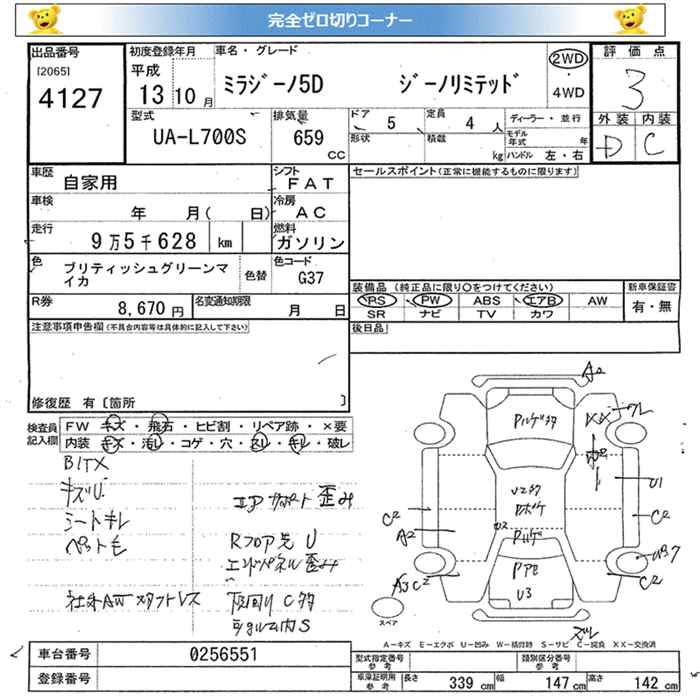 完全ゼロ切りコーナー
出品番号
[2065]
4127
初度登録年月
平成
13 10 月
車名・グレード
ミラジーノ5D ジーノリミテッド
2WD
・
4WD
評価点
3
外装 内装
D C
型式
UA-L700S
排気量
659
CC
ドア 5
形状
定員 4 人
積載 kg
ディーラー・並行
モデル年式 年
ハンドル 左・右
車歴
自家用
シフト
FAT
車検
年 月( 日)
冷房
AC
走行
9万5千628 km
燃料
ガソリン
色
ブリティッシュグリーンマイカ
色替
色コード
G37
R券 8,670 円
名変通知期限 月 日
セールスポイント(正常に機能するものに限ります)
装備品 (純正品に限り○をつけてください)
PS PW ABS エアB AW
SR ナビ TV カワ
新車保証書
有・無
後日品
注意事項申告欄(不具合内容等は具体的に記入して下さい)
修復歴 有〔箇所 〕
検査員記入欄
FW キズ・飛石・ヒビ割・リペア跡・×要
内装 キズ・汚レ・コゲ・穴・スレ・キレ・破レ
キズU
シートキレ
ペット毛
エアサポート歪み
Rフロア先U
エンドパネル歪み
下回りC多
A2
XX
U1
C2
C2
A2
U2
C2
U3
スペア
A-キズ E-エクボ U-凹み W-補修跡 S-サビ C-腐食 XX-交換済
車台番号 0256551
登録番号
型式指定番号
参考
類別区分番号
参考
車庫証明用
参考
長さ 339 cm 幅 147 cm 高さ 142 cm